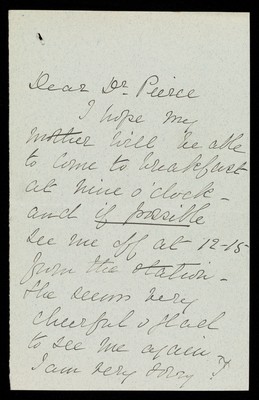 Dear Dr. Pierce
I hope my
mother will be able
to come to breakfast
at nine o'clock -
and if possible
see me off at 12-15
from the station -
she seems very
cheerful & glad
to see me again
I am very sorry